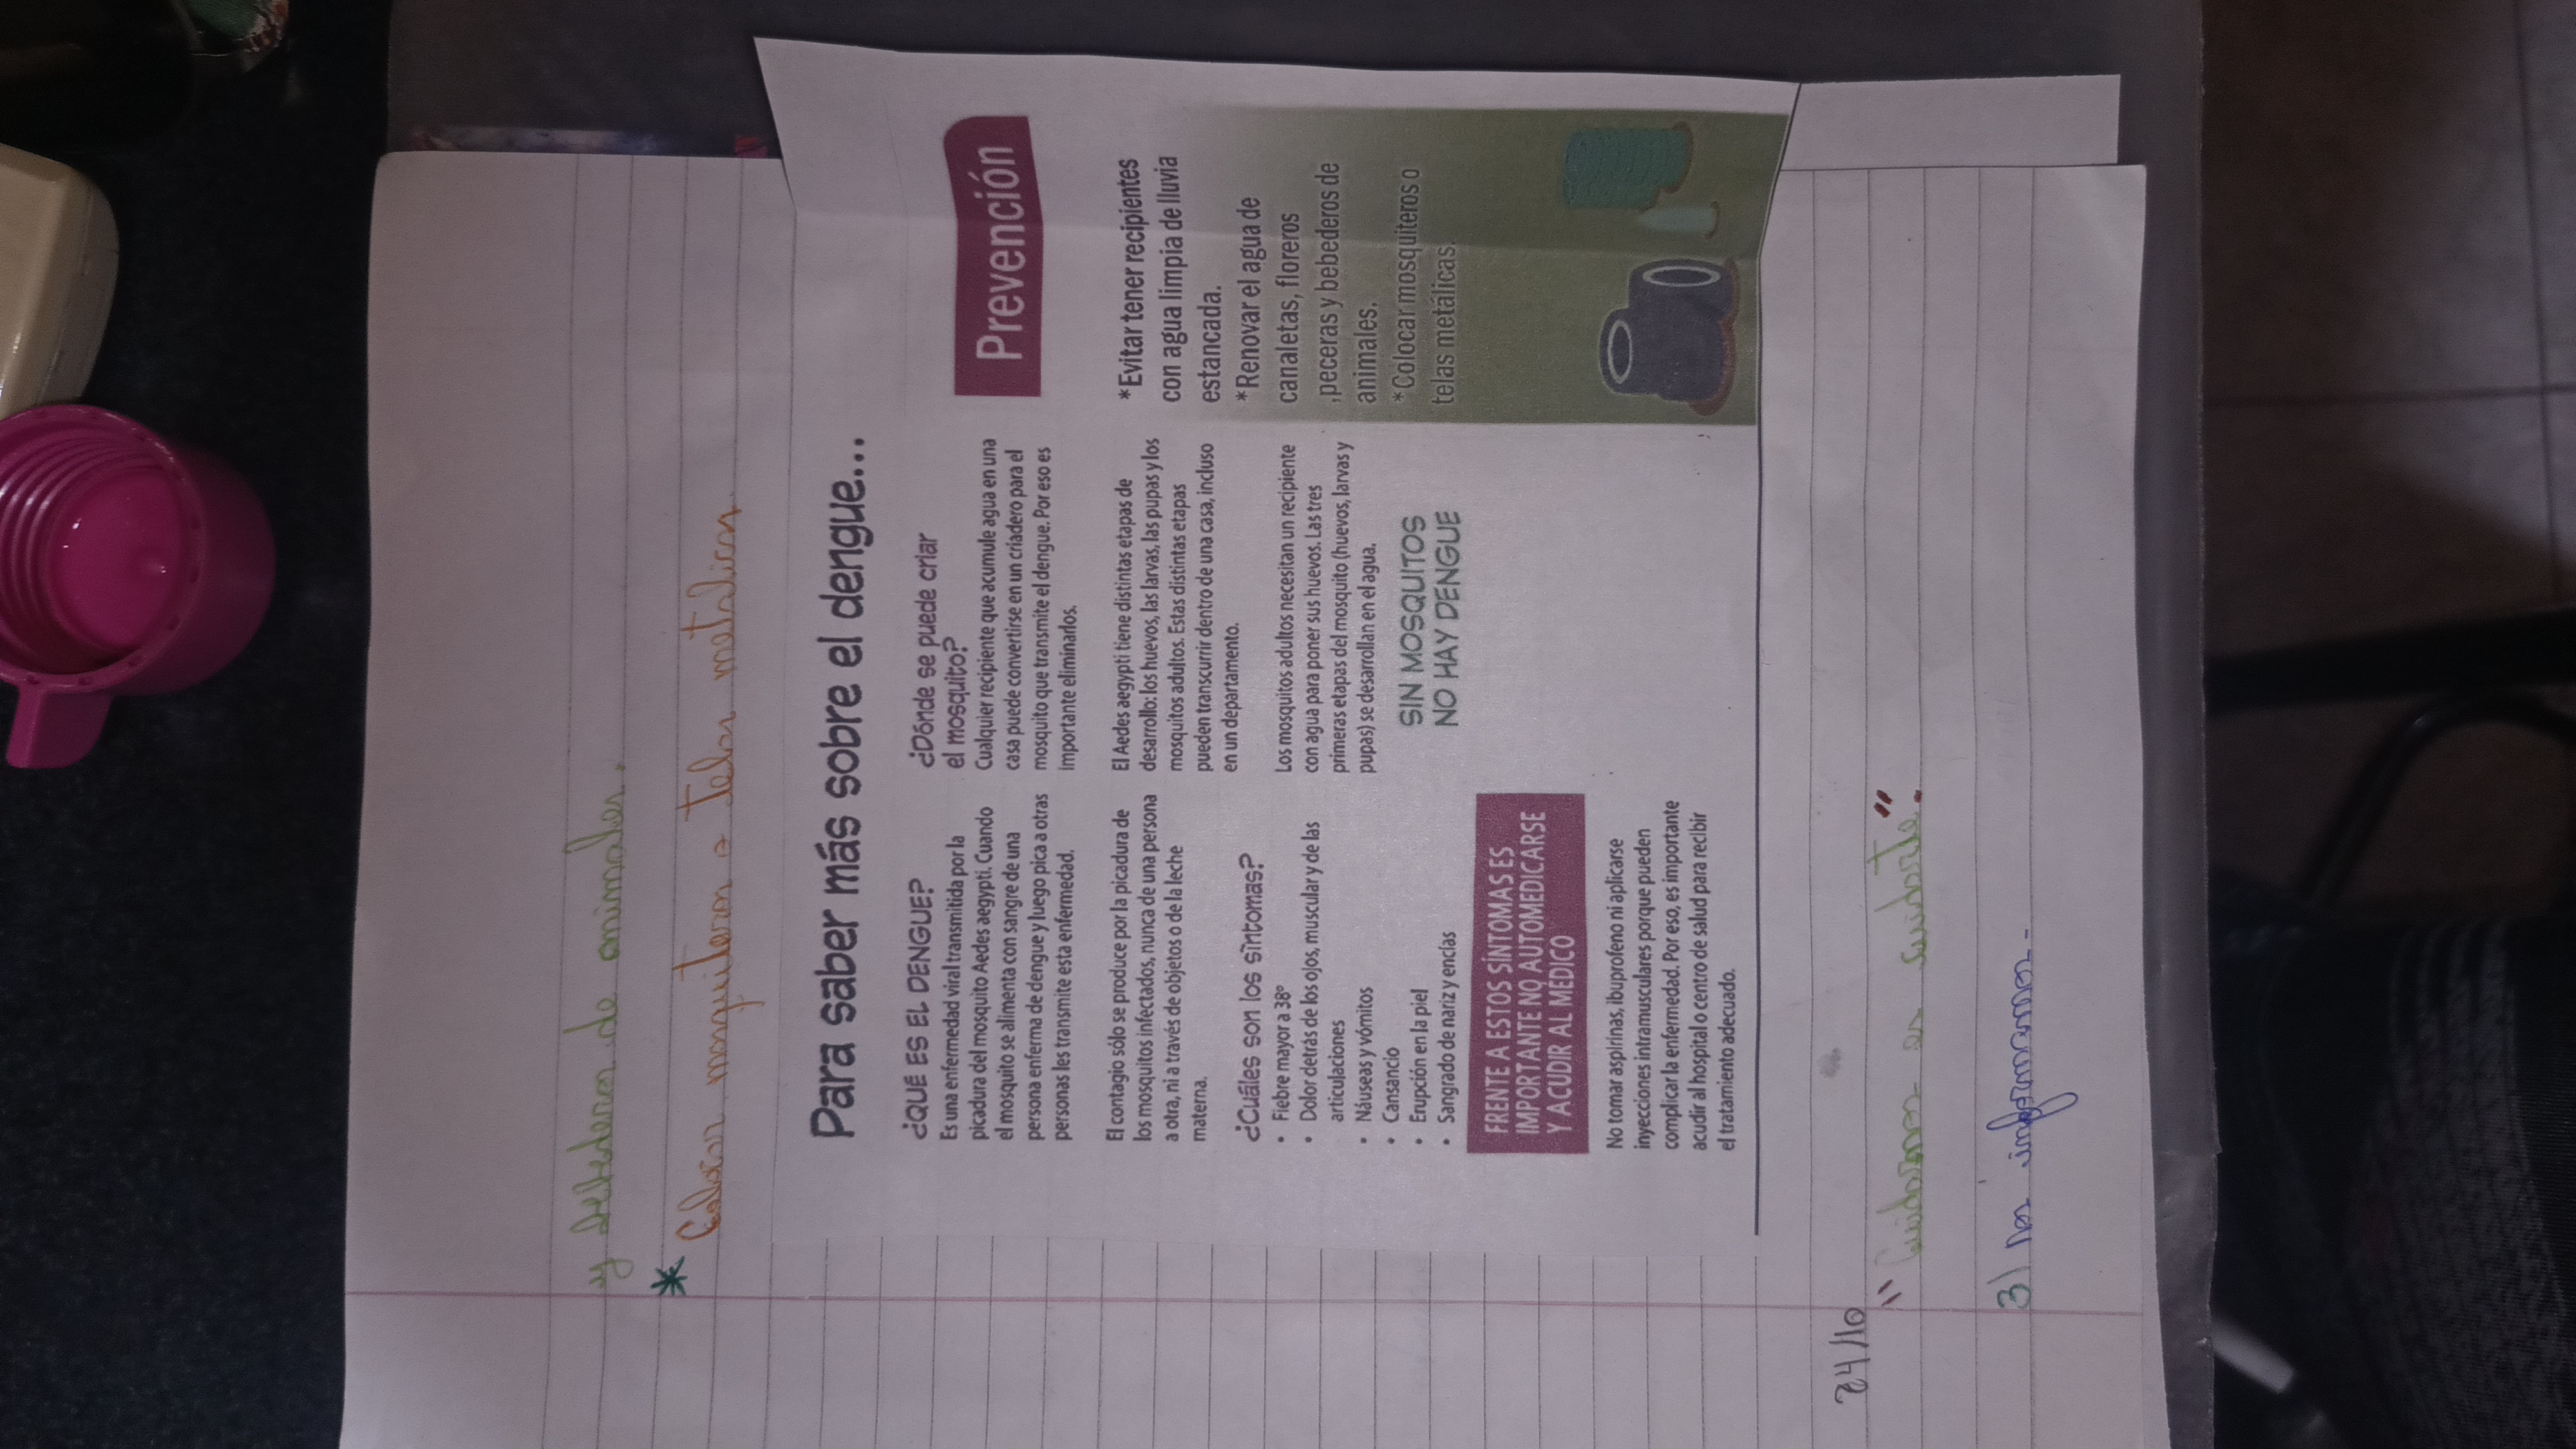 y bebederos de animales.
* Colocar mosquiteros o telas metálicas.
Para saber más sobre el dengue...
¿QUÉ ES EL DENGUE?
Es una enfermedad viral transmitida por la
picadura del mosquito Aedes aegypti. Cuando
el mosquito se alimenta con sangre de una
persona enferma de dengue y luego pica a otras
personas les transmite esta enfermedad.
El contagio sólo se produce por la picadura de
los mosquitos infectados, nunca de una persona
a otra, ni a través de objetos o de la leche
materna.
¿Cuáles son los síntomas?
• Fiebre mayor a 38º
• Dolor detrás de los ojos, muscular y de las
articulaciones
• Náuseas y vómitos
• Cansancio
• Erupción en la piel
• Sangrado de nariz y encías
FRENTE A ESTOS SÍNTOMAS ES
IMPORTANTE NO AUTOMEDICARSE
Y ACUDIR AL MÉDICO
No tomar aspirinas, ibuprofeno ni aplicarse
inyecciones intramusculares porque pueden
complicar la enfermedad. Por eso, es importante
acudir al hospital o centro de salud para recibir
el tratamiento adecuado.
¿Dónde se puede criar
el mosquito?
Cualquier recipiente que acumule agua en una
casa puede convertirse en un criadero para el
mosquito que transmite el dengue. Por eso es
importante eliminarlos.
El Aedes aegypti tiene distintas etapas de
desarrollo: los huevos, las larvas, las pupas y los
mosquitos adultos. Estas distintas etapas
pueden transcurrir dentro de una casa, incluso
en un departamento.
Los mosquitos adultos necesitan un recipiente
con agua para poner sus huevos. Las tres
primeras etapas del mosquito (huevos, larvas y
pupas) se desarrollan en el agua.
SIN MOSQUITOS
NO HAY DENGUE
Prevención
*Evitar tener recipientes
con agua limpia de lluvia
estancada.
*Renovar el agua de
canaletas, floreros
,peceras y bebederos de
animales.
*Colocar mosquiteros o
telas metálicas.
24/10
"Cuidarnos es cuidarte".
3) Nos informamos.